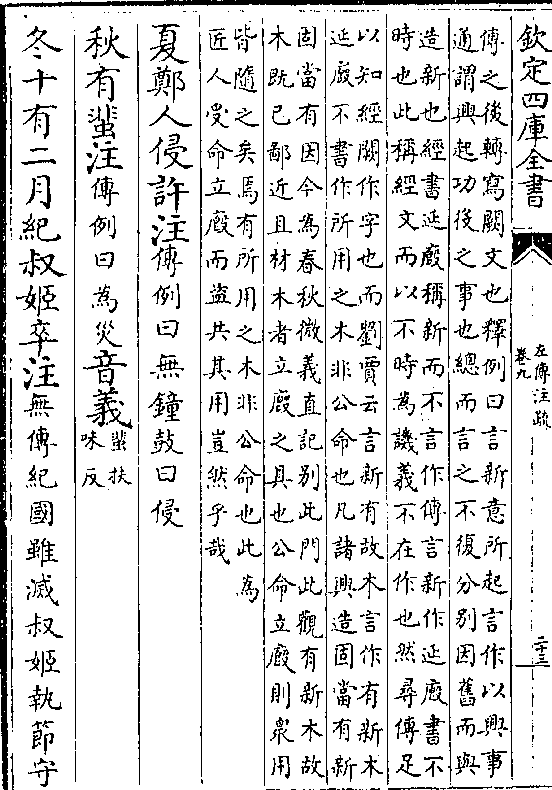 欽定四庫全書
左傳注疏
卷九
二十三
傳之後轉寫闕文也釋例曰言新意所起言作以興事
通謂興起功役之事也總而言之不復分別因舊而與
造新也經書延廄稱新而不言作傳言新作延廄書不
時也此稱經文而以不時為譏義不在作也然尋傳足
以知經闕作字也而劉賈云言新有故木言作有新木
延廄不書作所用之木非公命也凡諸興造固當有新
固當有因今為春秋微義直記別此門此觀有新木故
木既已鄙近且材木者立廄之具也公命立廄則衆用
皆隨之矣焉有所用之木非公命也此為
匠人受命立廄而盜共其用豈然乎哉
夏鄭人侵許注傳例曰無鐘鼓曰侵
秋有蜚注傳例曰為災音義蜚扶
味反
冬十有二月紀叔姬卒注無傳紀國雖滅叔姬執節守